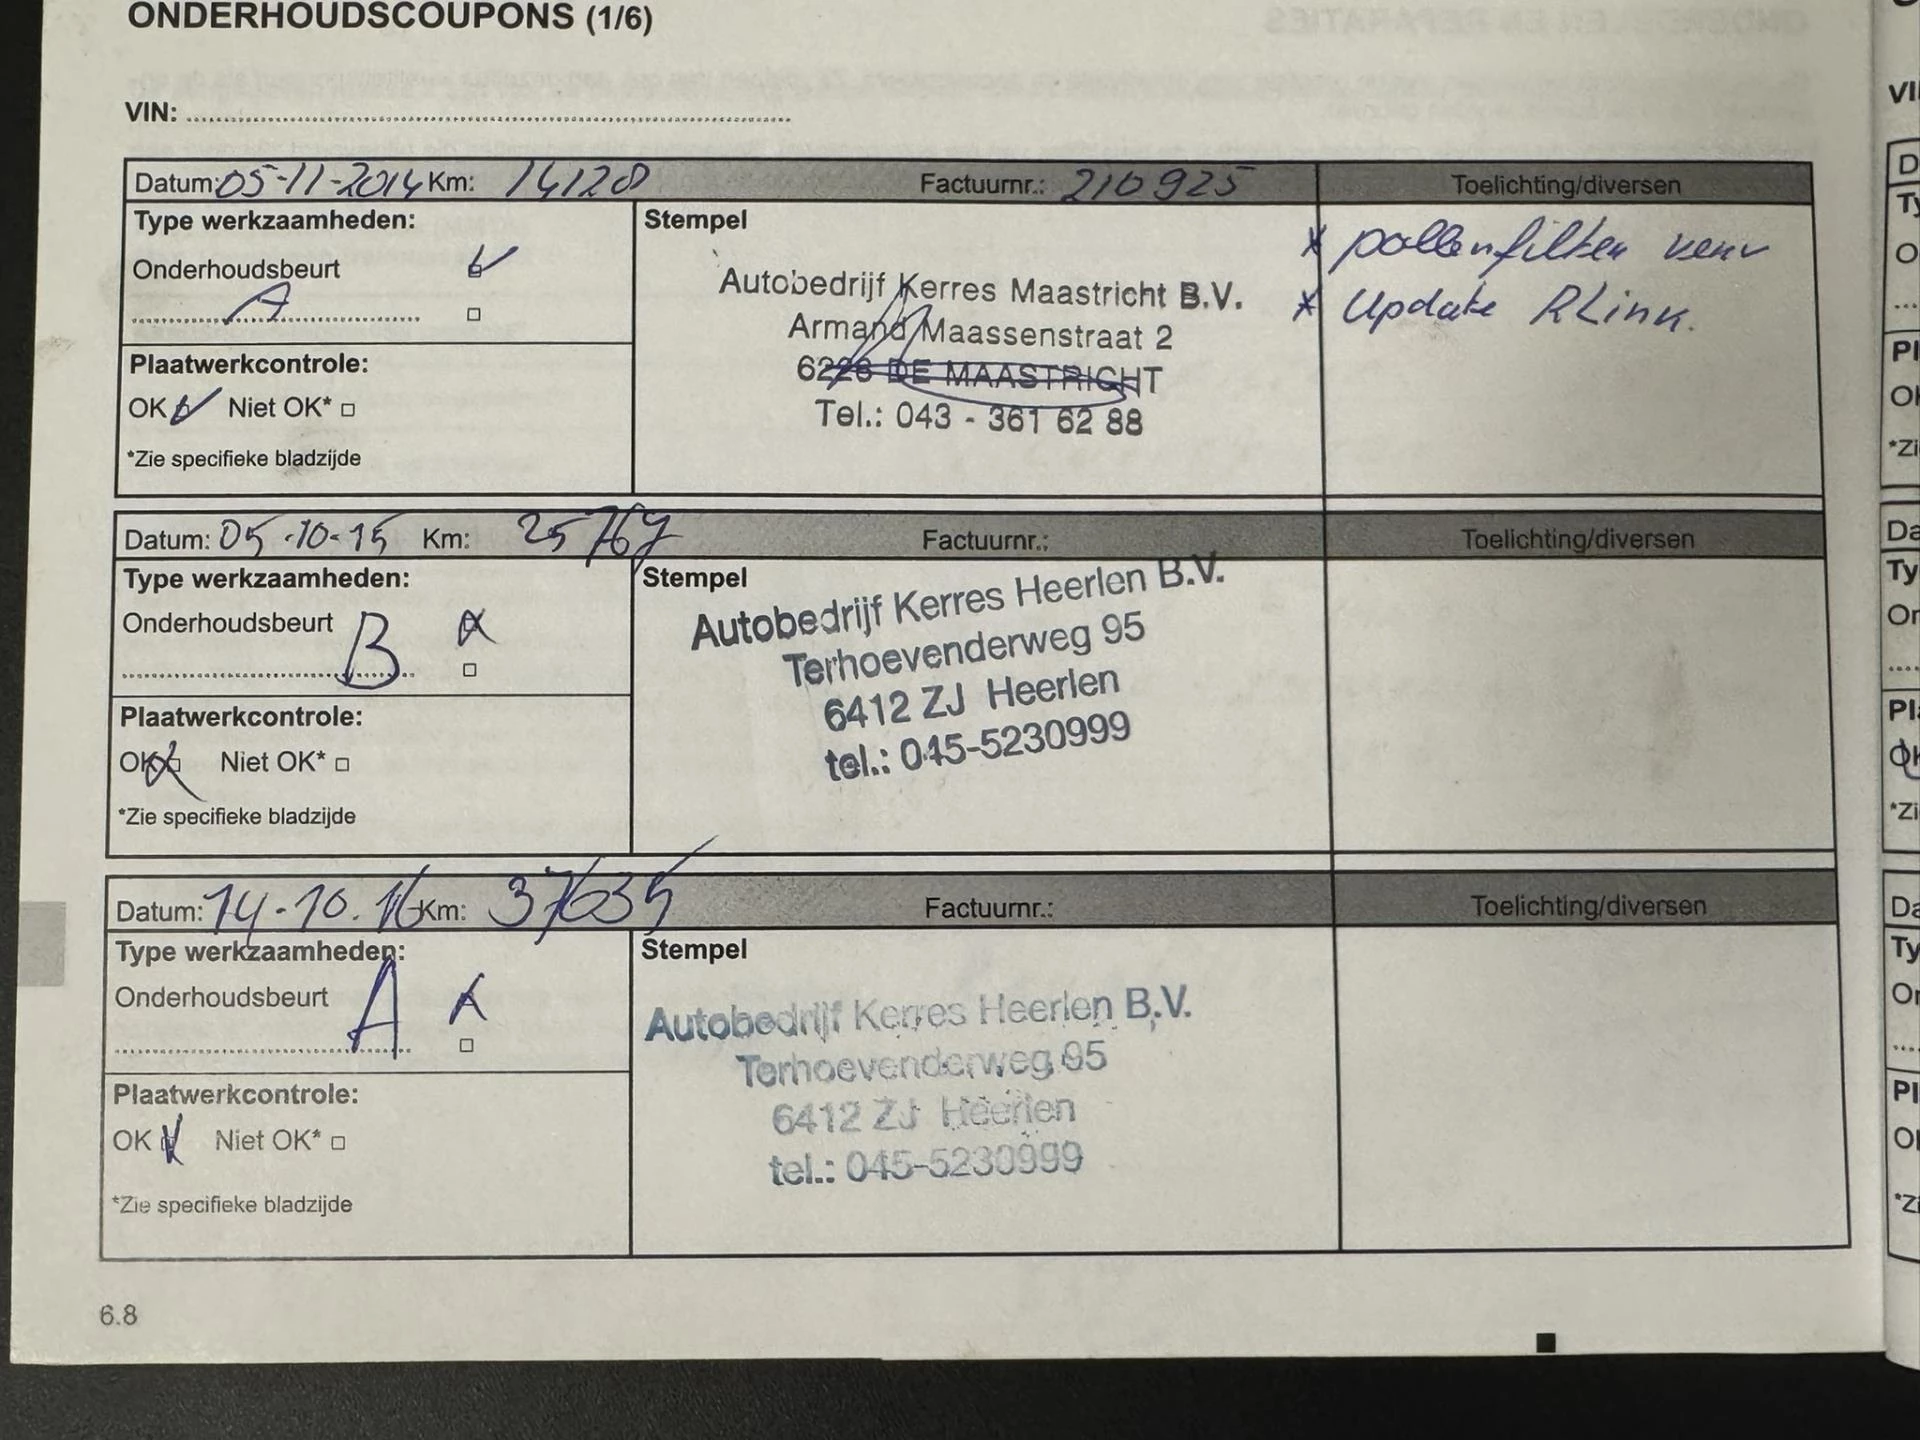 ONDERHOUDSCOUPONS (1/6)
VIN:
Datum: 05-11-2014 Km: 14120 Factuurnr.: 210925 Toelichting/diversen
Type werkzaamheden:
Onderhoudsbeurt
A
Plaatwerkcontrole:
OK Niet OK*
*Zie specifieke bladzijde
Stempel
Autobedrijf Kerres Maastricht B.V.
Armand Maassenstraat 2
6228 DE MAASTRICHT
Tel.: 043 - 361 62 88
* pollenfilter verv
* Update RLink.
Datum: 05-10-15 Km: 25767 Factuurnr.: Toelichting/diversen
Type werkzaamheden:
Onderhoudsbeurt
B
Plaatwerkcontrole:
OK Niet OK*
*Zie specifieke bladzijde
Stempel
Autobedrijf Kerres Heerlen B.V.
Terhoevenderweg 95
6412 ZJ Heerlen
tel.: 045-5230999
Datum: 14-10.16 Km: 37635 Factuurnr.: Toelichting/diversen
Type werkzaamheden:
Onderhoudsbeurt
A
Plaatwerkcontrole:
OK Niet OK*
*Zie specifieke bladzijde
Stempel
Autobedrijf Kerres Heerlen B.V.
Terhoevenderweg 95
6412 ZJ Heerlen
tel.: 045-5230999
6.8